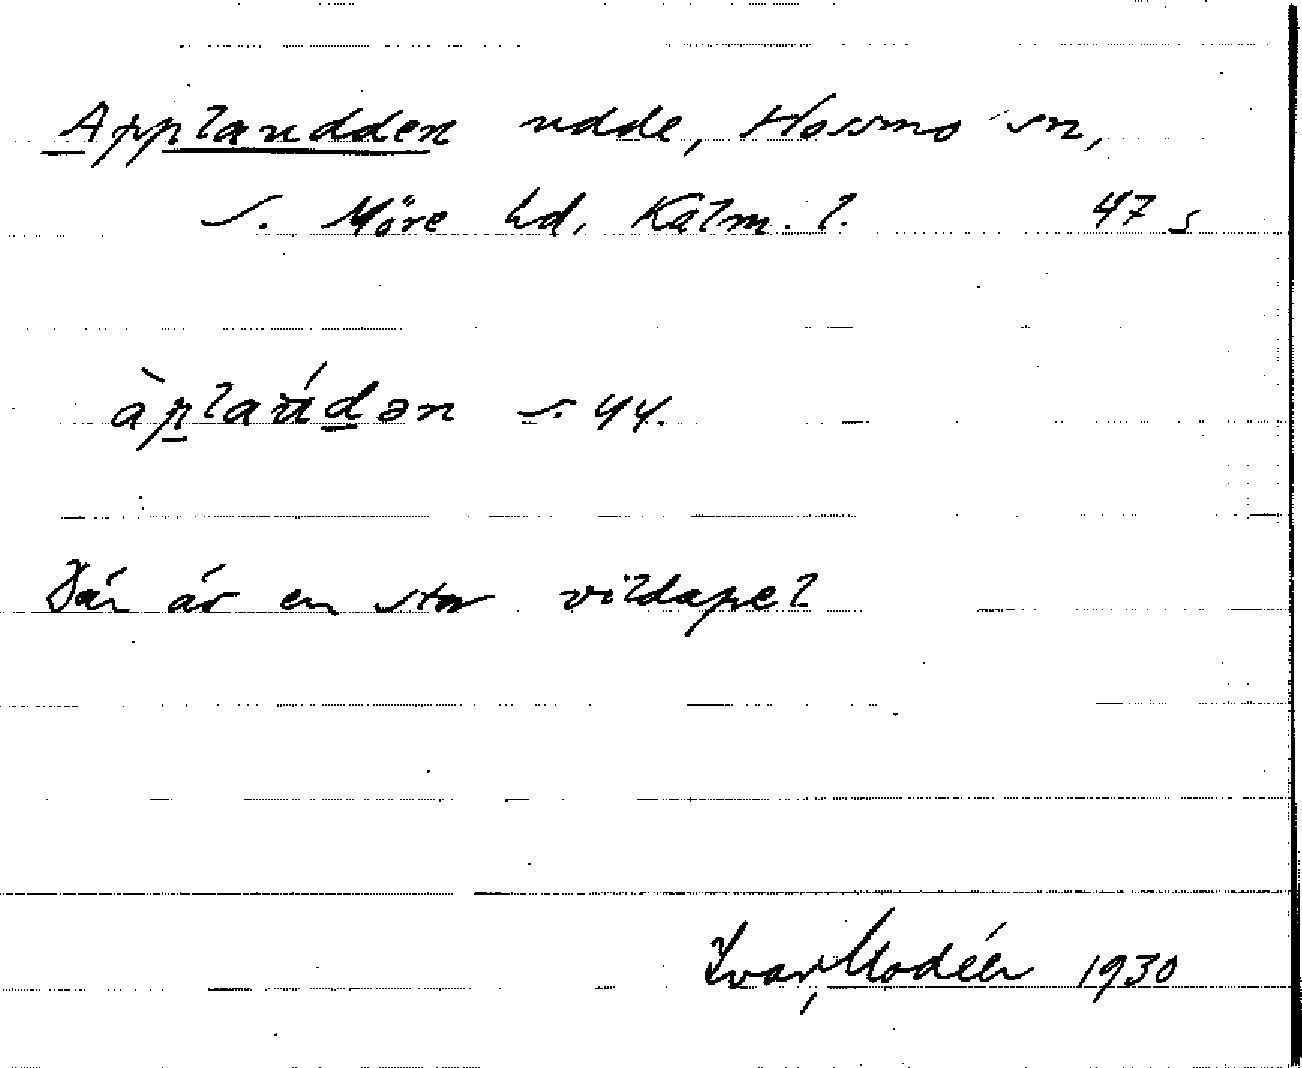 Applaudden udde, Hossmo sn,
S. Möre hd, Kalm. l. 47 s
àp̲laúd̲ən s. 44.
Där är en stor vildapel
Ivar Modéer 1930